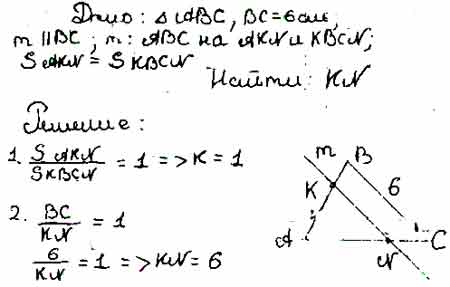 Дано: △ABC, BC=6см,
m ∥ BC; m: ABC на AKN и KBCN;
S AKN = S KBCN
Найти: KN
Решение:
1. S AKN / S KBCN = 1 => K = 1
2. BC / KN = 1
6 / KN = 1 => KN = 6
m B
K 6
A N C